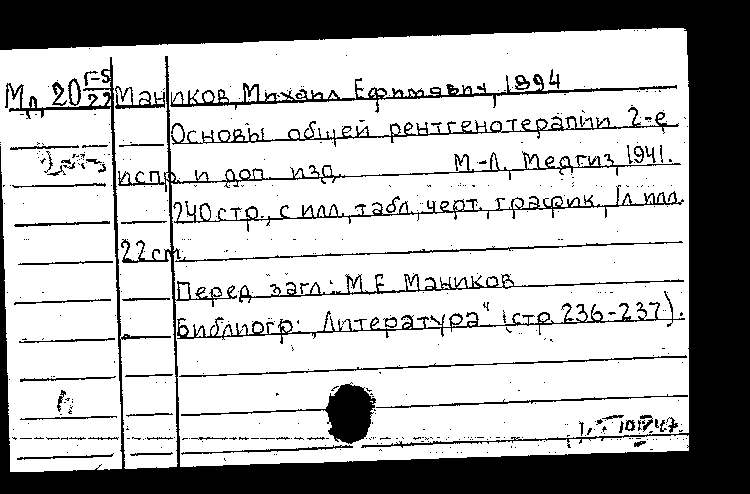 Мд 20 Г-5/22 Маников, Михаил Ефимович, 1894
Основы общей рентгенотерапии 2-е
испр. и доп. изд. М.-Л., Медгиз, 1941.
240 стр., с илл., табл., черт., график., 1 л илл.
22 cm.
Перед загл.: М.Е. Маников
Библиогр.: „Литература" (стр. 236-237).
10 IV 47.